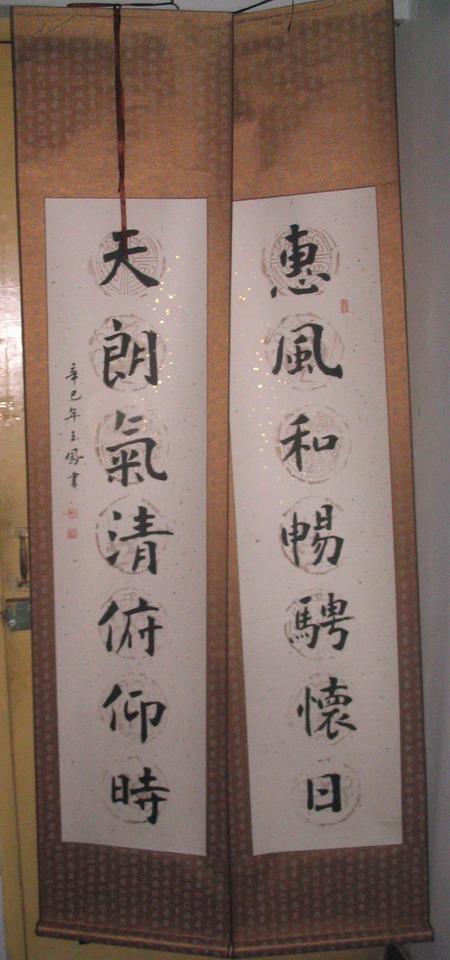 惠風和暢騁懷日
天朗氣清俯仰時
辛巳年玉鳳書